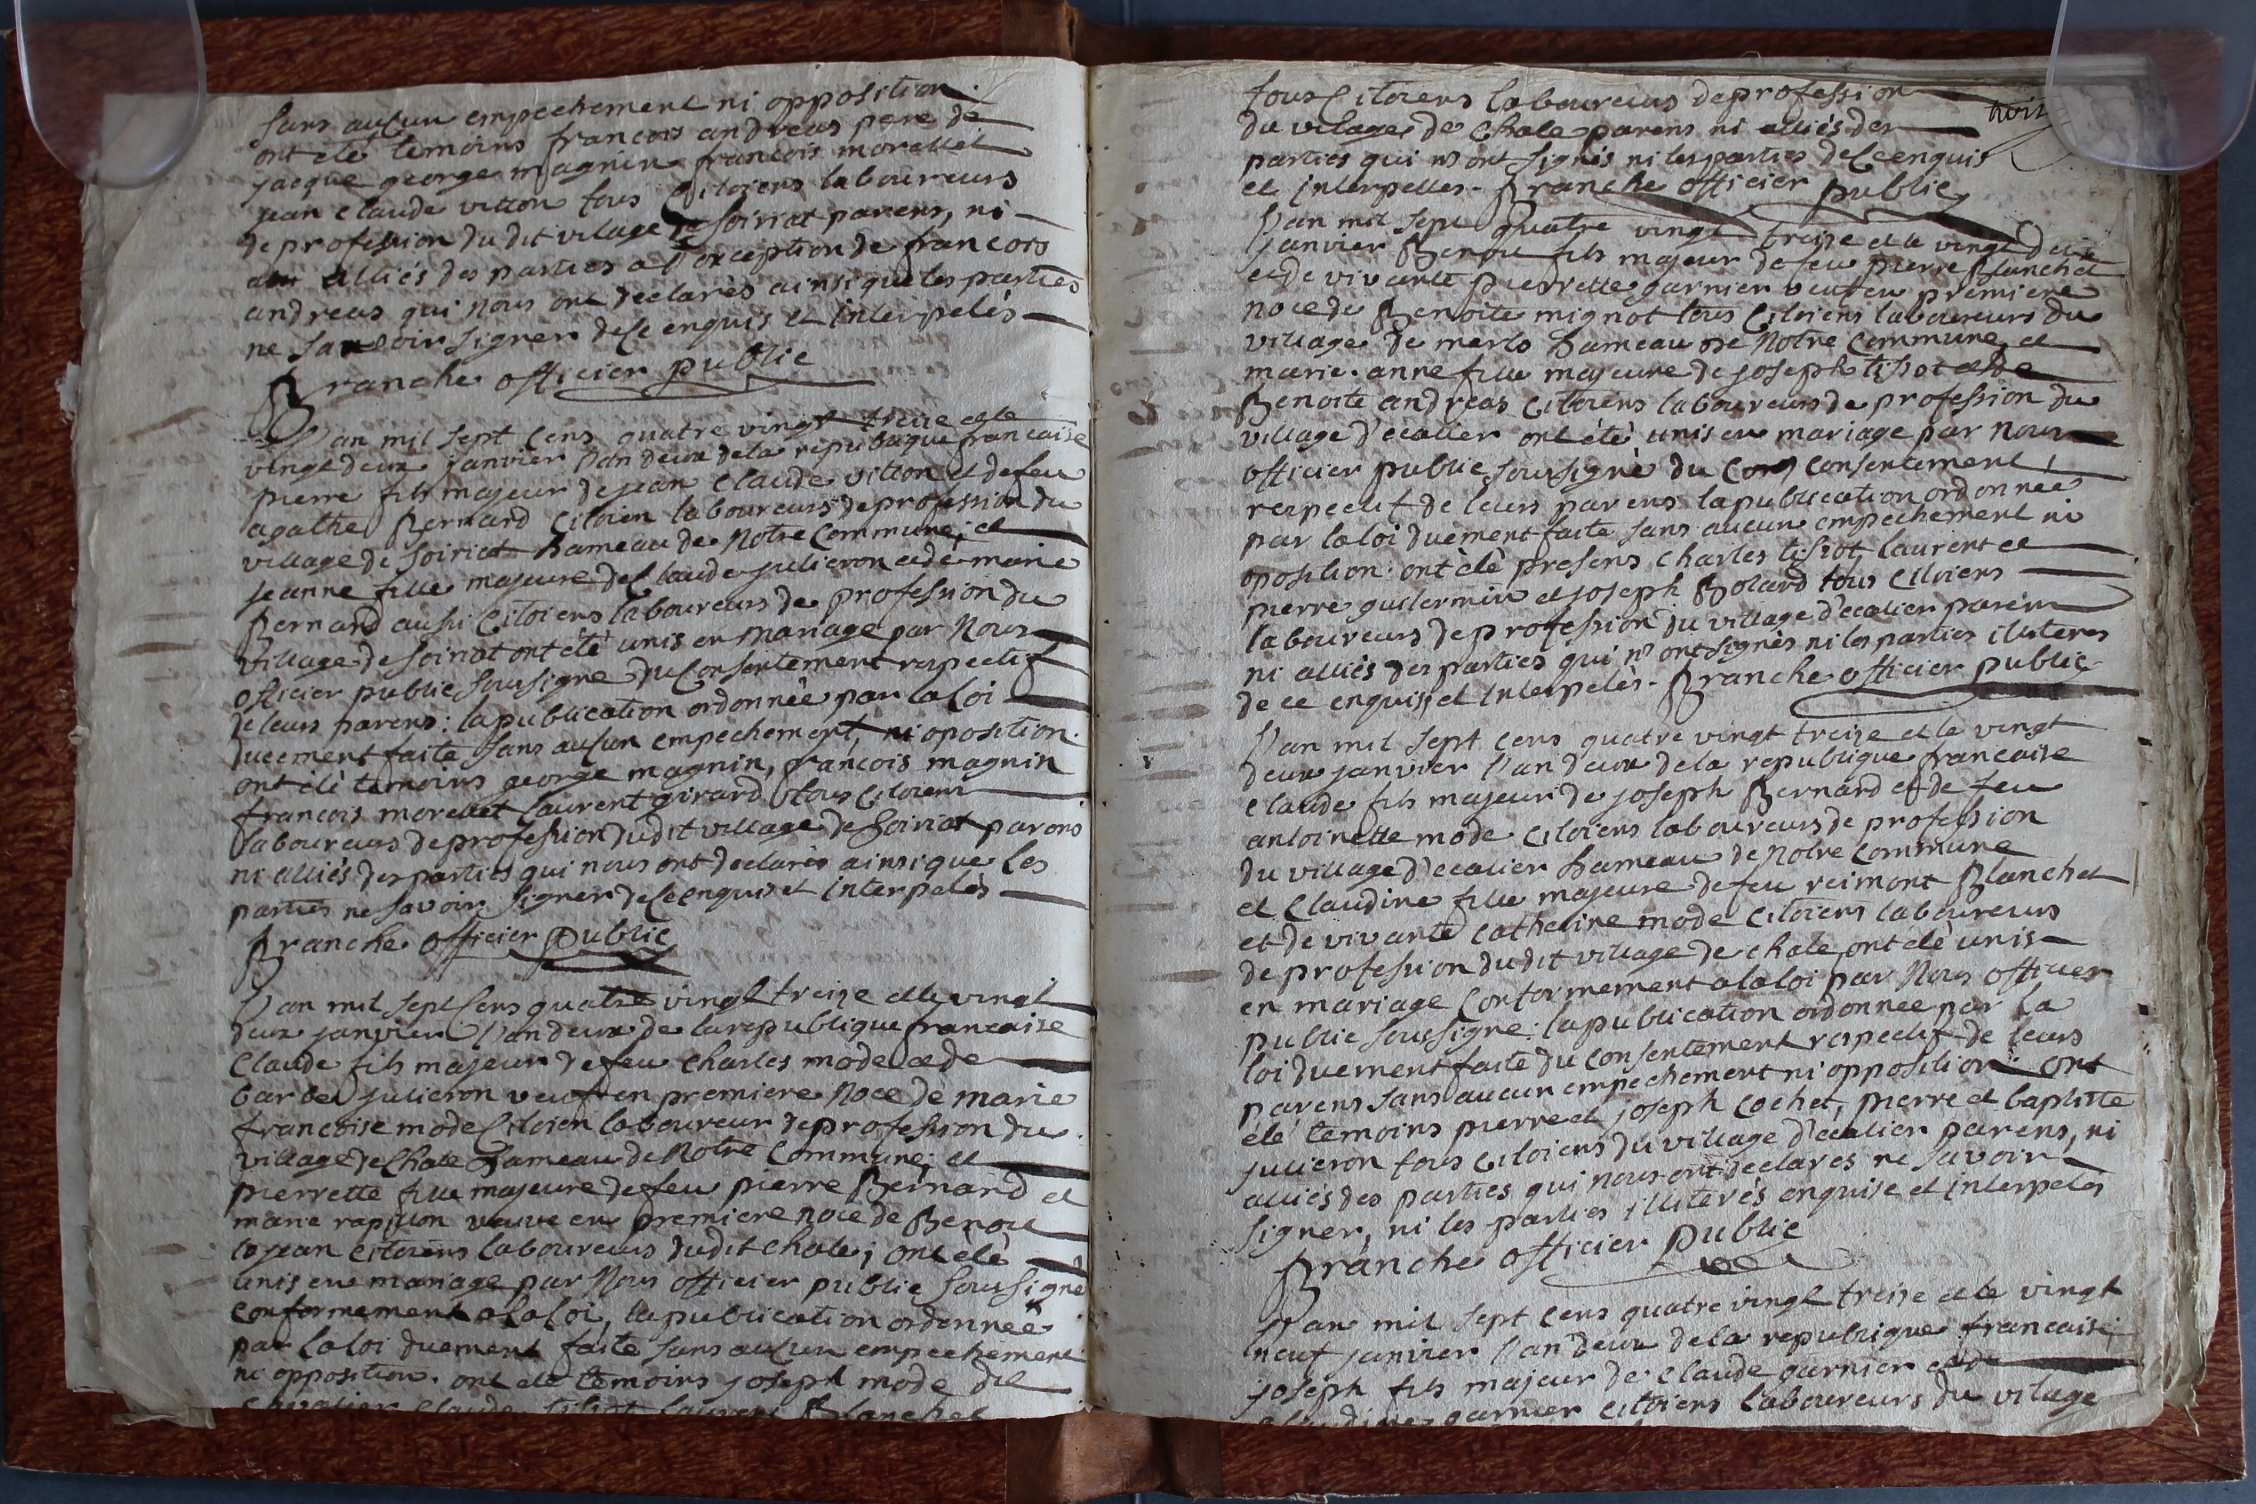 sans aucun empechement ni opposition.
ont eté temoins francois andreas pere de
jacque george magnin francois morellet
jean claude vitton tous Citoiens laboureurs
de profession du dit vilage de soiriat parens, ni
alliés des parties a l'exception de francois
andreas qui nous ont declarés ainsi que les parties
ne savoir signer de Ce enquis et interpelés
Branche officier public
L'an mil sept Cens quatre vingt treize et le
vingt deux janvier l'an deux de la republique francaise
pierre fils majeur de jean Claude vitton et de feu
agathe Bernard Citoien laboureurs de profession du
village de soiriat hameau de Notre Commune; et
jeanne fille majeure de Claude julieron et de marie
Bernard aussi Citoiens laboureurs de profession du
village de soiriat ont été unis en mariage par Nous
officier public soussigne du Consentement respectif
de leurs parens: la publication ordonnée par la loi
duement faite sans aucun empechement, ni oposition.
ont été temoins george magnin, francois magnin
francois morellet laurent girard tous Citoiens
laboureurs de profession dudit village de soiriat parens
ni alliés des parties qui nous ont declarés ainsi que les
parties ne savoir signer de Ce enquis et interpelés
Branche officier public
L'an mil sept Cens quatre vingt treize et le vingt
deux janvier l'an deux de la republique francaise
Claude fils majeur de feu charles mode et de
barbe julieron veuf en premiere noce de marie
francoise mode Citoien laboureur de profession du
village de chale hameau de Notre Commune; et
pierrette fille majeure de feu pierre Bernard et
marie rapillon veuve en premiere noce de Benoit
jean Citoiens laboureurs dudit chale; ont èté
unis en mariage par Nous officier public soussigné
conformement a la loi, la publication ordonnée
par la loi duement faite sans aucun empechement
ni opposition. ont eté temoins joseph mode dit
Cavalier Claude tissot laurent Blanchet
trois
tous Citoiens laboureurs de profession
du vilage de chale parens ni alliés des
parties qui n'ont signés ni les parties de Ce enquis
et interpelles - Branche officier public
L'an mil sept quatre vingt treize et le vingt deux
janvier Benoit fils majeur de feu pierre Blanchet
et de vivante pierrette garnier veuf en premiere
noce de Benoite mignot tous Citoiens laboureurs du
village de merlo hameau de Notre Commune, et
marie-anne fille majeure de joseph tissot et de
Benoite andreas Citoiens laboureurs de profession du
village d'ecalier ont été unis en mariage par nous
officier public soussigné du Consentement
respectif de leurs parens la publication ordonnée
par la loi duement faite sans aucun empechement ni
oposition. ont èté presens charles tissot, laurent et
pierre guilermin et joseph Bolard tous Citoiens
laboureurs de profession du village d'ecalier parens
ni alliés des parties qui n'ont signés ni les parties iliteres
de ce enquis et interpelés - Branche officier public
L'an mil sept cens quatre vingt treize et le vingt
deux janvier l'an deux de la republique francaise
claude fils majeur de joseph Bernard et de feu
antoinette mode citoiens laboureurs de profession
du village d'ecalier hameau de Notre Commune
et Claudine fille majeure de feu reimont Blanchet
et de vivante catherine mode Citoiens laboureurs
de profession dudit village de chale ont èté unis
en mariage conformement a la loi par Nous officier
public soussigne: la publication ordonnée par la
loi duement faite du consentement respectif de leurs
parens sans aucun empechement ni opposition: ont
été temoins pierre et joseph Cochet, pierre et baptiste
julieron tous citoiens du village d'ecalier parens, ni
alliés des parties qui nous ont declares ne savoir
signer, ni les parties illiterés enquise et interpelés
Branche officier public
L'an mil sept cens quatre vingt treize et le vingt
neuf janvier l'an deux de la republique francaise
joseph fils majeur de claude garnier et de
claudine garnier citoiens laboureurs du vilage